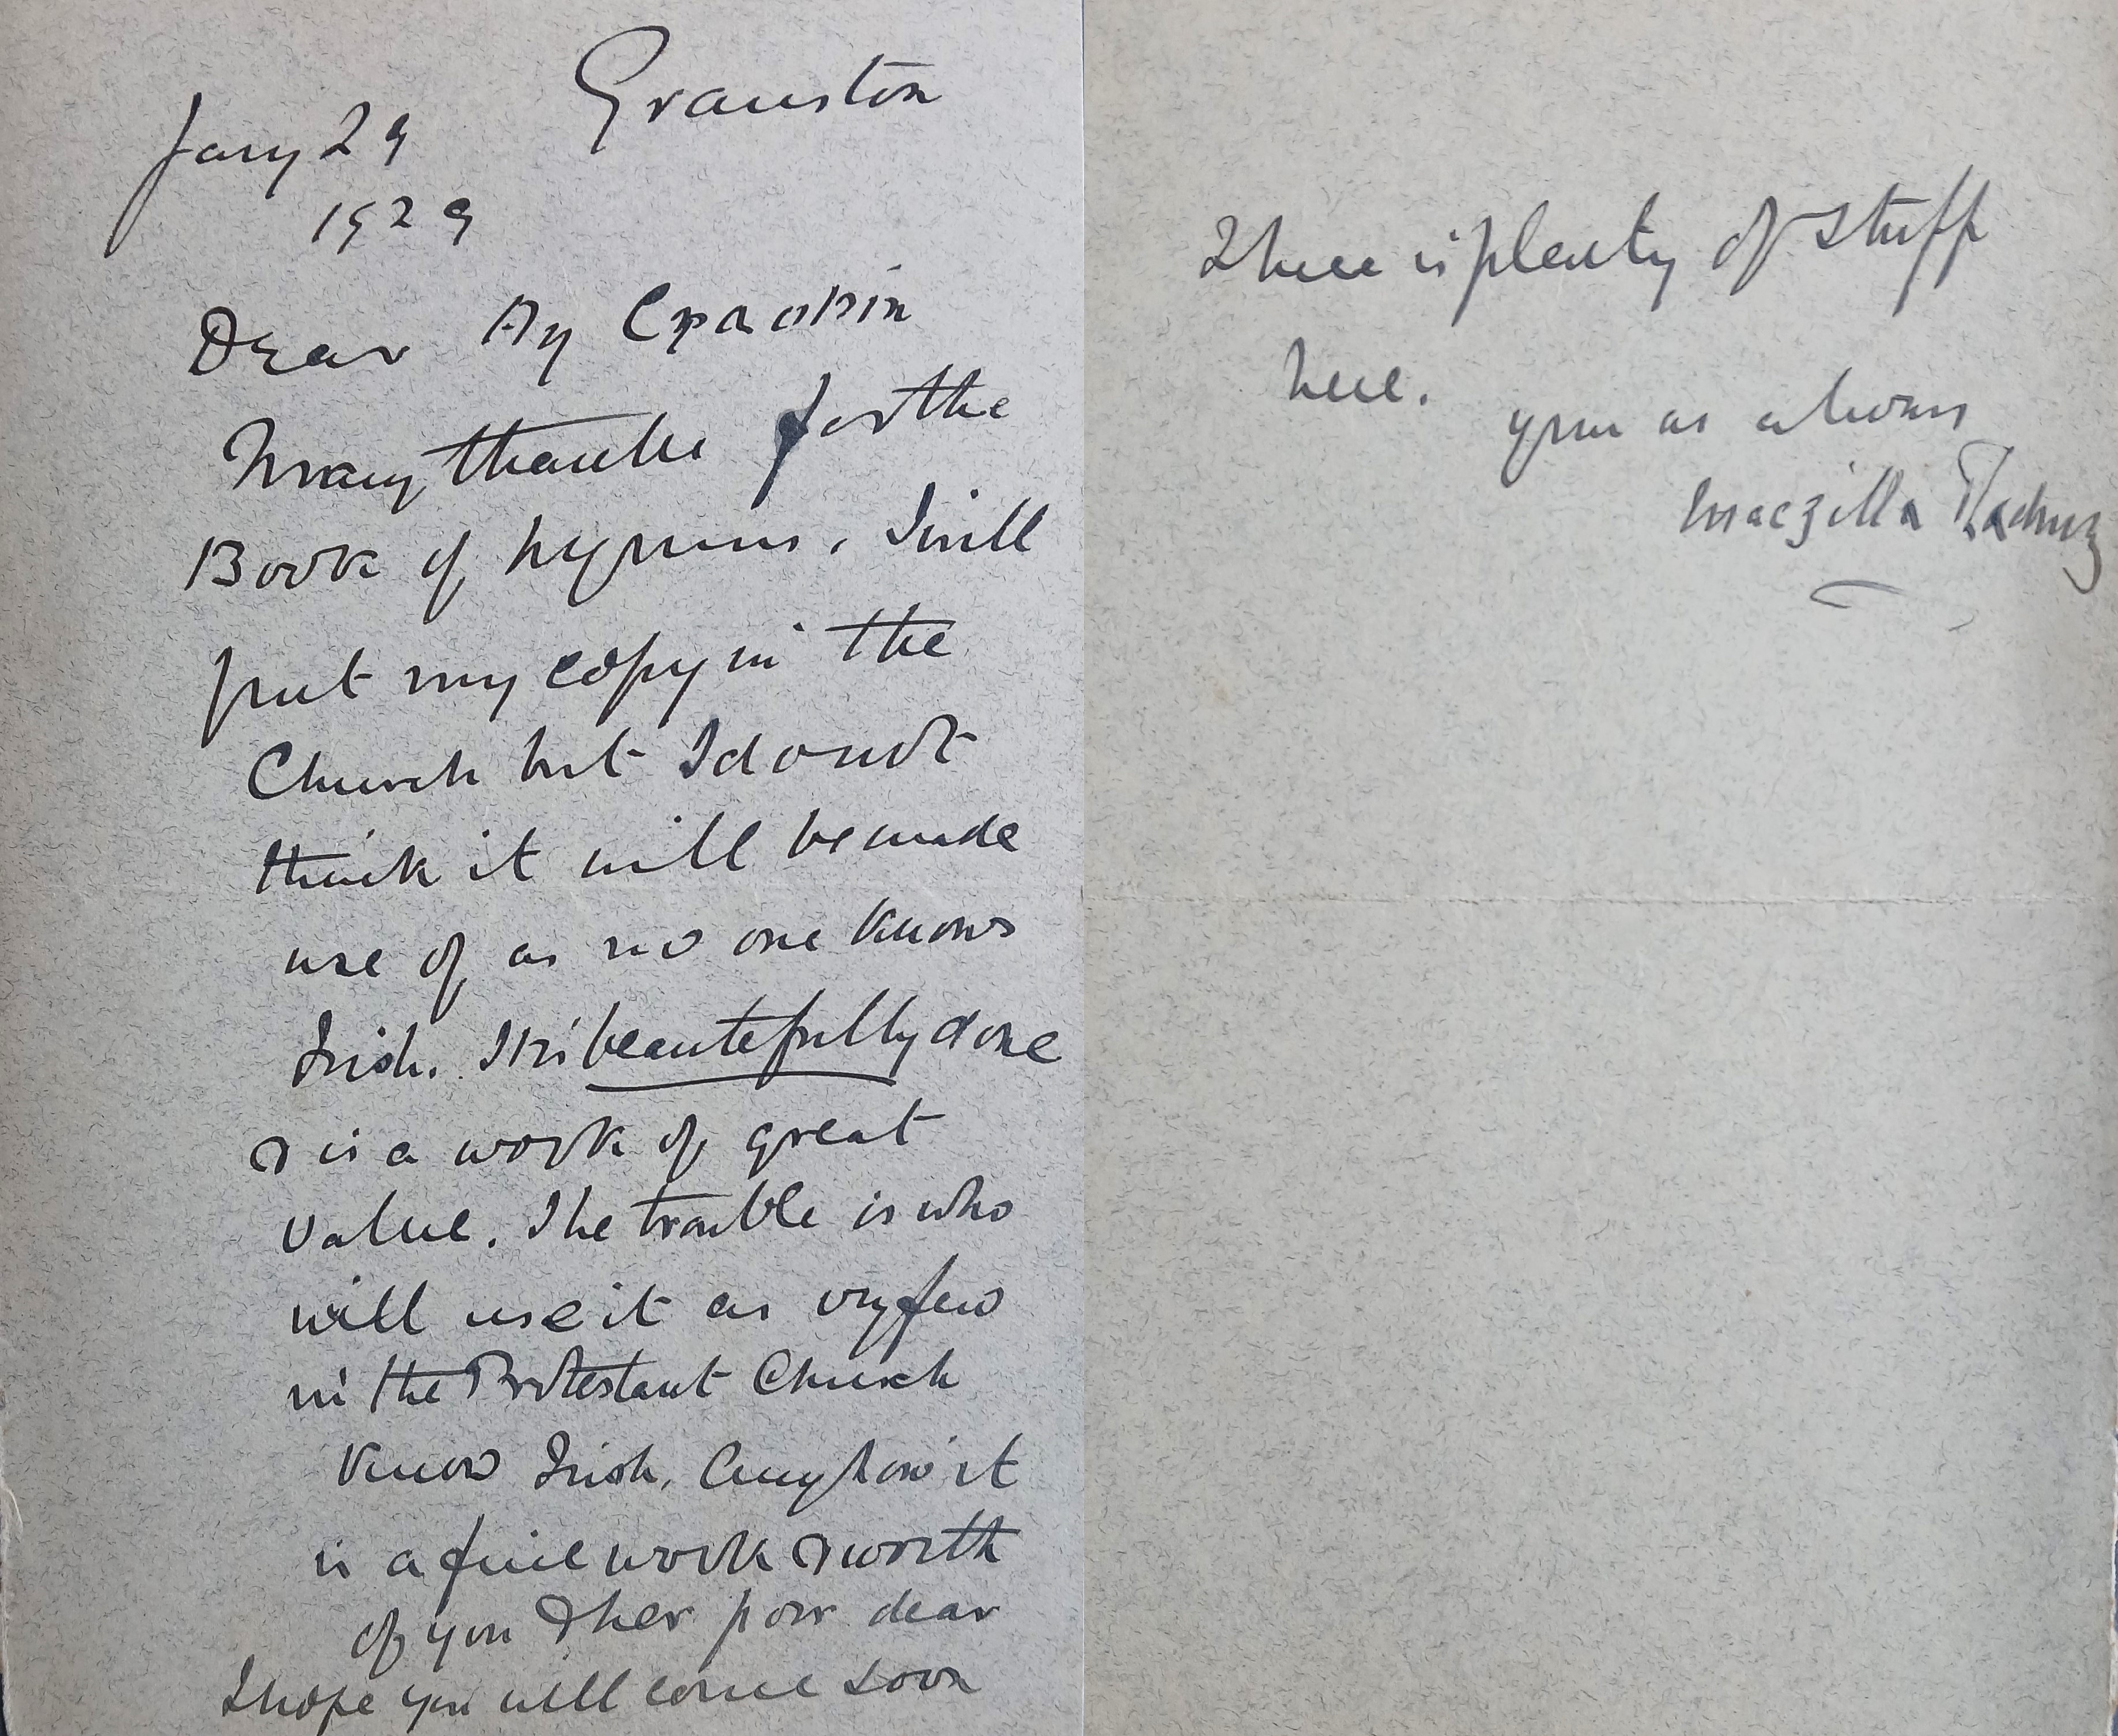 Granston
Jany 29
1929
Dear An Craoibin
Many thanks for the
Book of hymns. I will
put my copy in the
Church but I do not
think it will be made
use of as no one knows
Irish. It is beautefully done
& is a work of great
value. The trouble is who
will use it as very few
in the Protestant Church
know Irish. Anyhow it
is a fine work & worth
of you & her poor dear
I hope you will come soon
There is plenty of stuff
here.
yrs as always
Macgilla